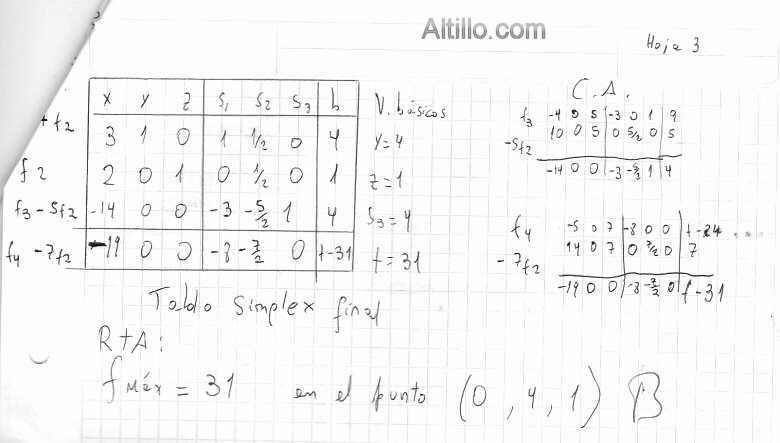 Altillo.com
Hoja 3
x y z s₁ s₂ s₃ b
+f₂ 3 1 0 1 1/2 0 4
f₂ 2 0 1 0 1/2 0 1
f₃ - 5f₂ -14 0 0 -3 -5/2 1 4
f₄ - 7f₂ -19 0 0 -8 -7/2 0 f-31
V. básicos
y=4
z=1
s₃=4
f=31
C.A.
f₃ -4 0 5 -3 0 1 9
-5f₂ 10 0 5 0 5/2 0 5
-14 0 0 -3 -5/2 1 4
f₄ -5 0 7 -8 0 0 f-24
-7f₂ 14 0 7 0 7/2 0 7
-19 0 0 -8 -7/2 0 f-31
Tabla Simplex final
RTA:
f máx = 31 en el punto (0, 4, 1) B